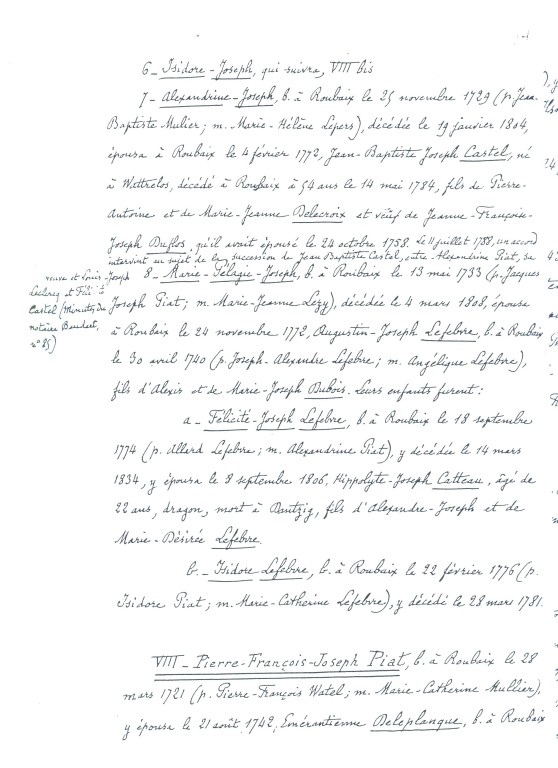 6_ Isidore-Joseph, qui suivra, VIII bis
7_ Alexandrine-Joseph, b. à Roubaix le 25 novembre 1729 (p. Jean-
Baptiste Mulier; m. Marie-Hélène Lepers), décédée le 19 janvier 1804,
épousa à Roubaix le 4 février 1772, Jean-Baptiste Joseph Castel, né
à Wattrelos, décédé à Roubaix à 54 ans le 14 mai 1784, fils de Pierre-
Antoine et de Marie-Jeanne Delecroix et veuf de Jeanne-Françoise-
Joseph Duflos, qu'il avait épousé le 24 octobre 1758. Le 11 juillet 1788, un accord
intervint au sujet de la succession de Jean Baptiste Castel, entre Alexandrine Piat, sa
veuve et Louis-Joseph
Leclercq et Féli
Castel (Minutes du
notaire
n° 85)
8_ Marie-Pélagie-Joseph, b. à Roubaix le 13 mai 1733 (p. Jacques
Joseph Piat; m. Marie-Jeanne Lezy), décédée le 4 mars 1808, épousa
à Roubaix le 24 novembre 1772, Augustin-Joseph Lefebvre, b. à Roubaix
le 30 avril 1740 (p. Joseph-Alexandre Lefebvre; m. Angélique Lefebvre),
fils d'Alexis et de Marie-Joseph Dubois. Leurs enfants furent:
a_ Félicité-Joseph Lefebvre, b. à Roubaix le 18 septembre
1774 (p. Allard Lefebvre; m. Alexandrine Piat), y décédée le 14 mars
1834, y épousa le 8 septembre 1806, Hippolyte-Joseph Catteau, âgé de
22 ans, dragon, mort à Dantzig, fils d'Alexandre-Joseph et de
Marie-Désirée Lefebvre.
b._ Isidore Lefebvre, b. à Roubaix le 22 février 1776 (p.
Isidore Piat; m. Marie-Catherine Lefebvre), y décédé le 28 mars 1781.
VIII_ Pierre-François-Joseph Piat, b. à Roubaix le 28
mars 1721 (p. Pierre-François Watel; m. Marie-Catherine Mullier),
y épousa le 21 août 1742, Emérantienne Deleplanque, b. à Roubaix